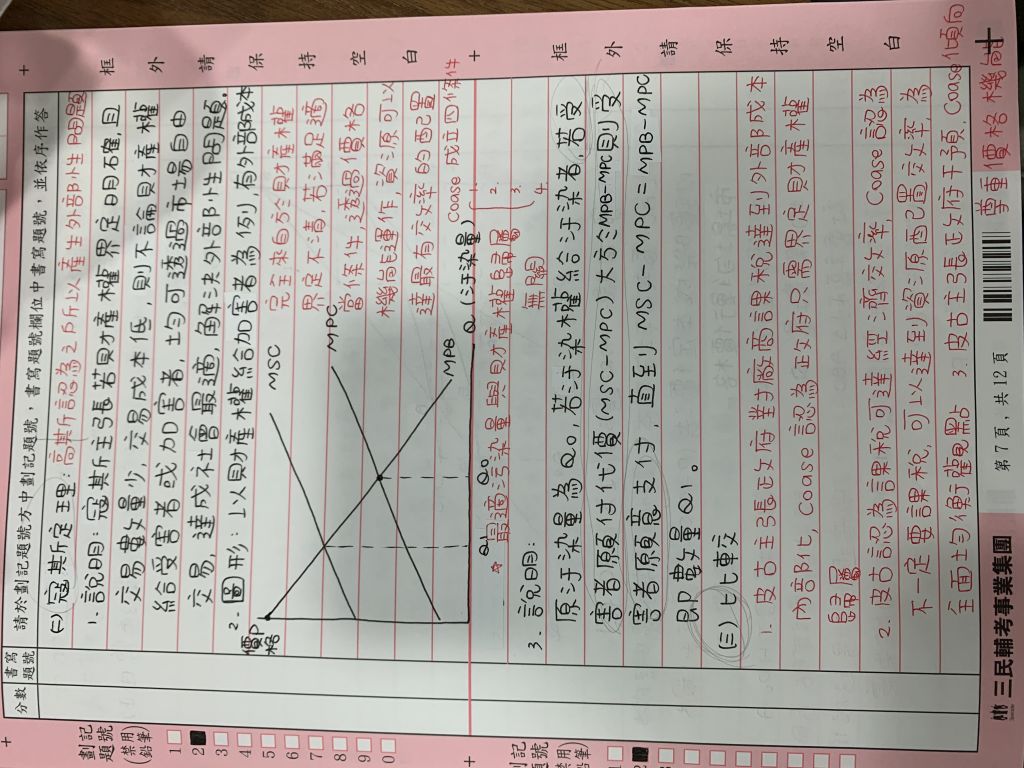 請於劃記題號方中劃記題號，書寫題號欄位中書寫題號，並依序作答
分數
書寫題號
劃記題號
(禁用鉛筆)
1
2
3
4
5
6
7
8
9
0
框 外 請 保 持 空 白
(二) 寇斯定理：高斯認為之戶所以產生外部性問題
1. 說明：寇斯主張若財產權界定明確，且
交易數量少，交易成本低，則不論財產權
給受害者或加害者，均可透過市場自由
交易，達成社會最適，解決外部性問題。
2. 圖形：以財產權給加害者為例，有外部成本
價格P
MSC
MPC
MPB
Q1
Q0
Q (汙染量)
完全來自於財產權
界定不清，若滿足適
當條件，透過價格
機能運作，資源可以
達最有效率的配置
Coase 成立四條件
1.
2.
3.
4.
☆ 最適污染量與財產權歸屬
無關
框 外 請 保 持 空 白
3. 說明：
原汙染量為Q0，若汙染權給汙染者，若受
害者願付代價(MSC-MPC)大於MPB-MPC則受
害者願意支付，直至MSC-MPC=MPB-MPC
即數量Q1。
(三) 比較
1. 皮古主張政府對廠商課稅達到外部成本
內部化，Coase 認為政府只需界定財產權
歸屬
2. 皮古認為課稅可達經濟效率，Coase 認為
不一定要課稅，可以達到資源配置效率，為
全面均衡觀點 3. 皮古主張政府干預，Coase 傾向
尊重價格機能
劃記題號
(禁用鉛筆)
1
2
3
三民輔考事業集團
第 7 頁，共 12 頁